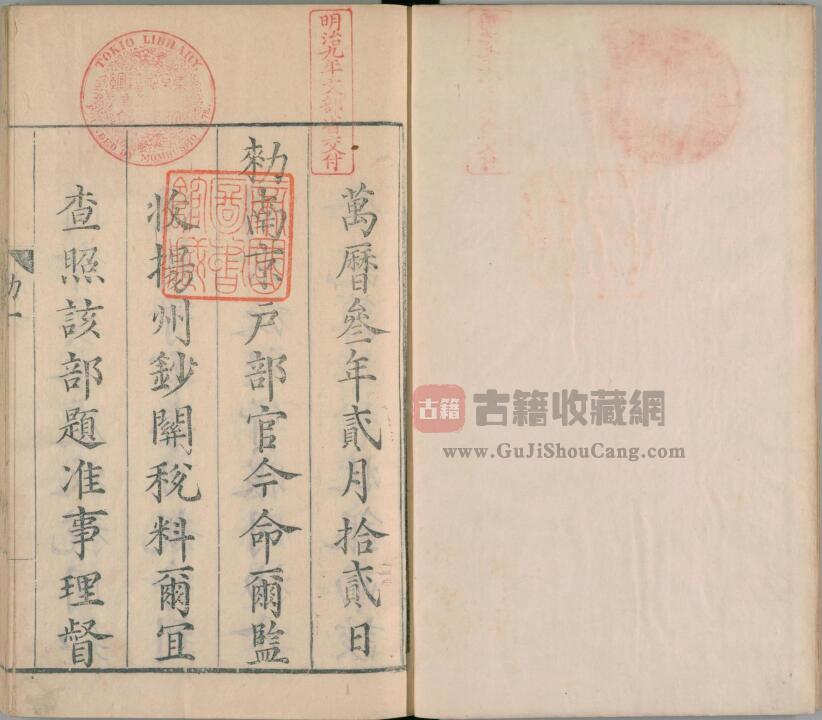 萬曆叁年貳月拾貳日
勑南京戶部官今命爾監
收揚州鈔關稅料爾宜
查照該部題准事理督
勑一
明治九年文部省交付
TOKIO LIBRARY
古籍
古籍收藏網
www.GuJiShouCang.com